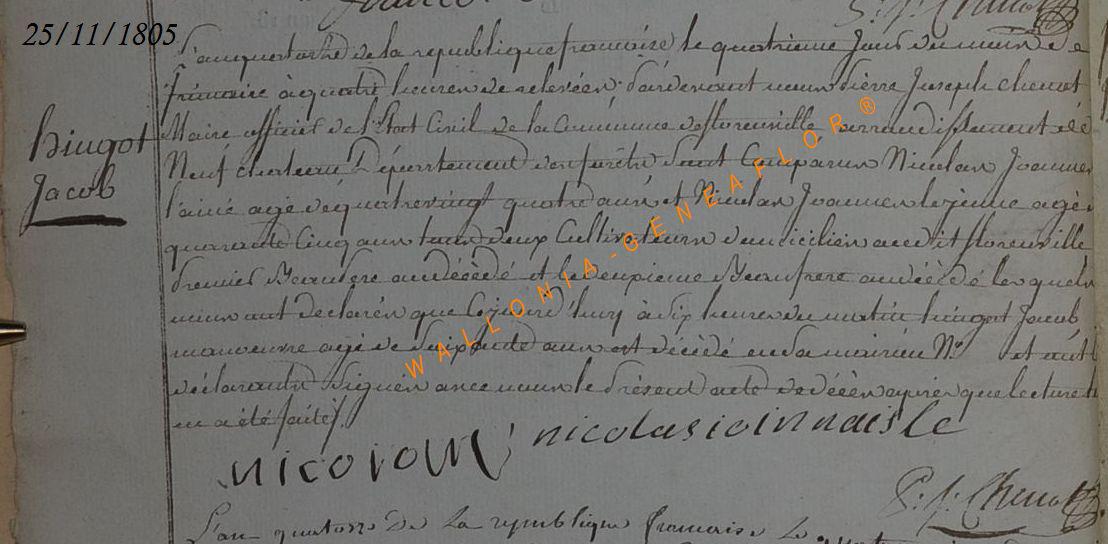 P. J. Chenot
25/11/1805
L'an quatorze de la republique francaise le quatrieme Jour du mois de
frimaire à quatre heures de relevéen pardevant nous pierre Joseph chenot
Maire officier de l'Etat Civil de la Commune de florenville arrondissement de
hingot
Jacob
Neuf chateau Département des forêts sont Comparus Nicolas Joannes
l'ainé agé de quatrevingt quatre ans et Nicolas Joannes le jeune agé
quarante Cinq ans tous deux Cultivateurs domiciliés audit florenville
premier Beaupere au décédé et le deuxieme Beaufrere au décédé lesquels
nous ont declarés que Cejourd'huy à Six heures du matin hingot Jacob
manoeuvre agé de soixante ans est décédé en sa maison N° et ont
déclarants Signés avec nous le présent acte de décès aprés que lecture
en a été faite
nicolas ioinnais le
P. J. Chenot
L'an quatorze de La republique francaise Le
WALLONIA-GENEAFLOR®